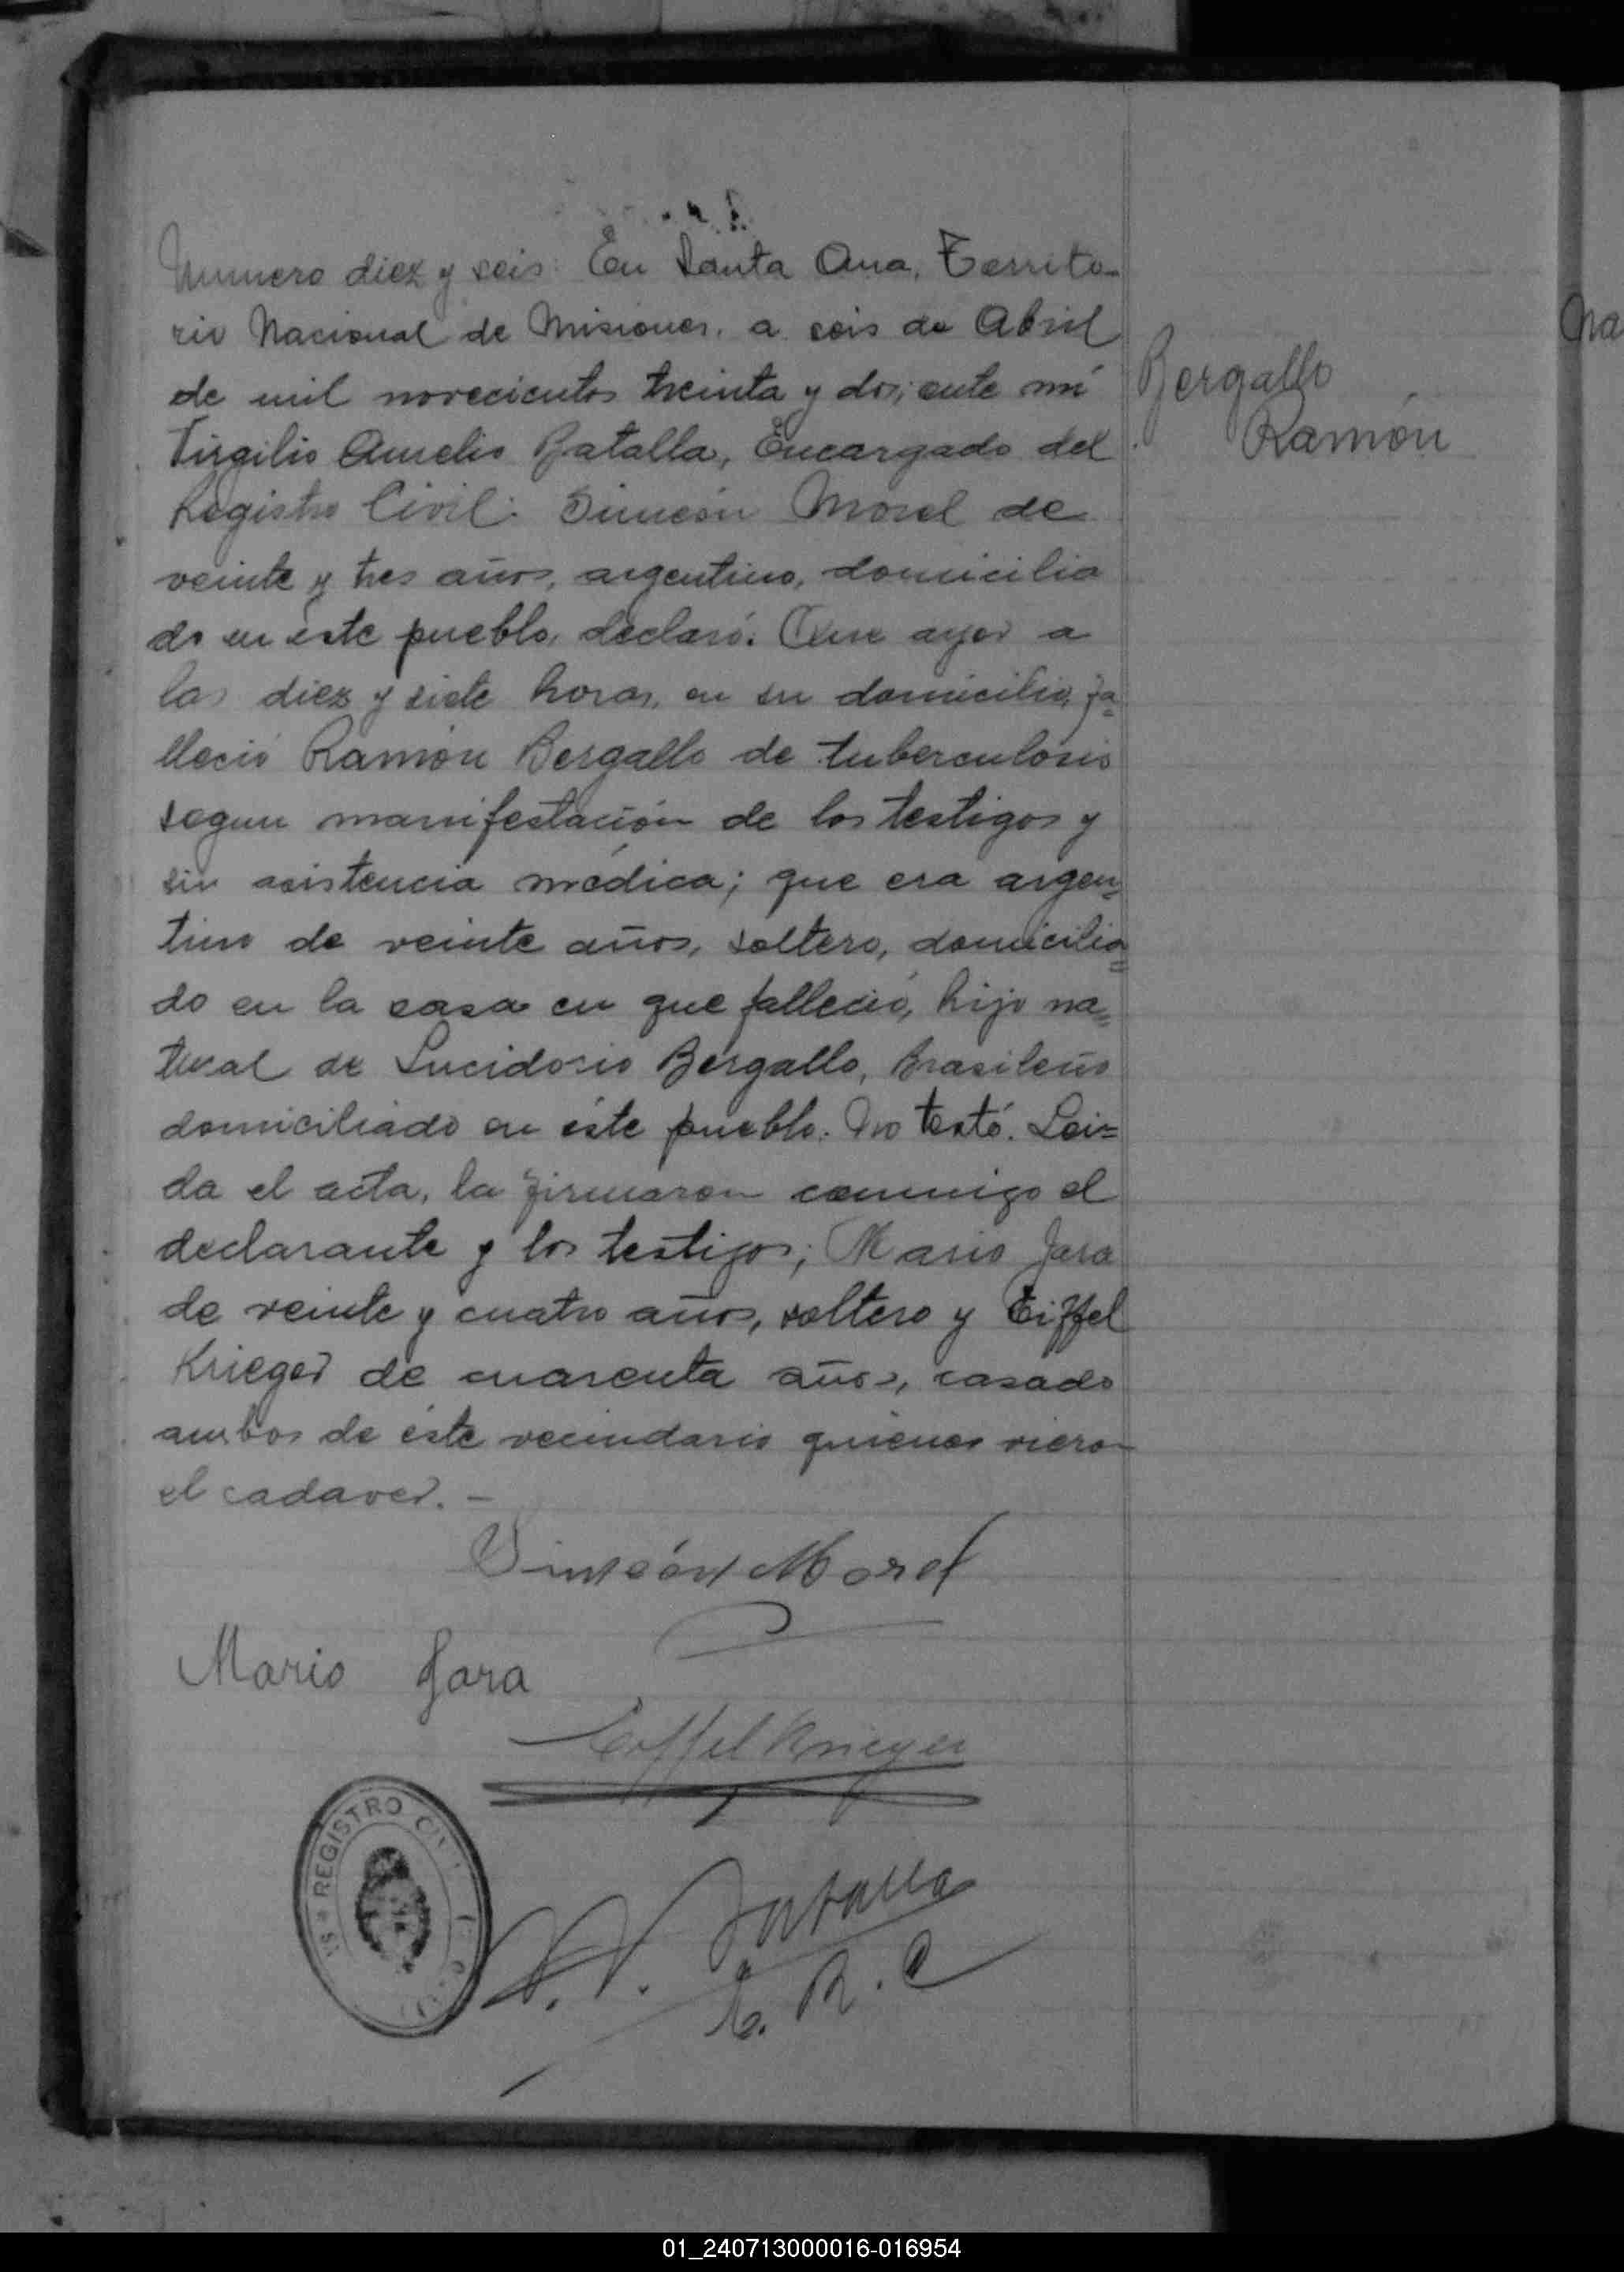 Numero diez y seis. En Santa Ana, Territo-
rio Nacional de Misiones, a seis de Abril
de mil novecientos treinta y dos; ante mi
Virgilio Aurelio Batalla, Encargado del
Registro Civil: Simeón Morel de
veinte y tres años, argentino, domicilia
do en éste pueblo, declaró: Que ayer a
las diez y siete horas, en su domicilio, fa=
lleció Ramón Bergallo de tuberculosis
segun manifestación de los testigos y
sin asistencia médica; que era argen=
tino de veinte años, soltero, domicilia=
do en la casa en que falleció, hijo na=
tural de Lucidorio Bergallo, Brasileño
domiciliado en éste pueblo. No testó. Lei=
da el acta, la firmaron conmigo el
declarante y los testigos; Mario Jara
de veinte y cuatro años, soltero y Eiffel
Krieger de cuarenta años, casado
ambos de éste vecindario quienes vieron
el cadaver. -
Bergallo
Ramón
Na
Simeón Morel
Mario Jara
Eiffel Krieger
REGISTRO CIVIL
V. Batalla
E. R. C
01_240713000016-016954